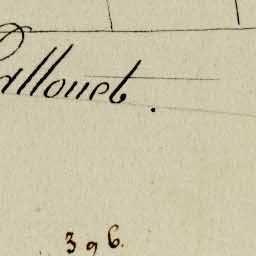 allouet.
396.